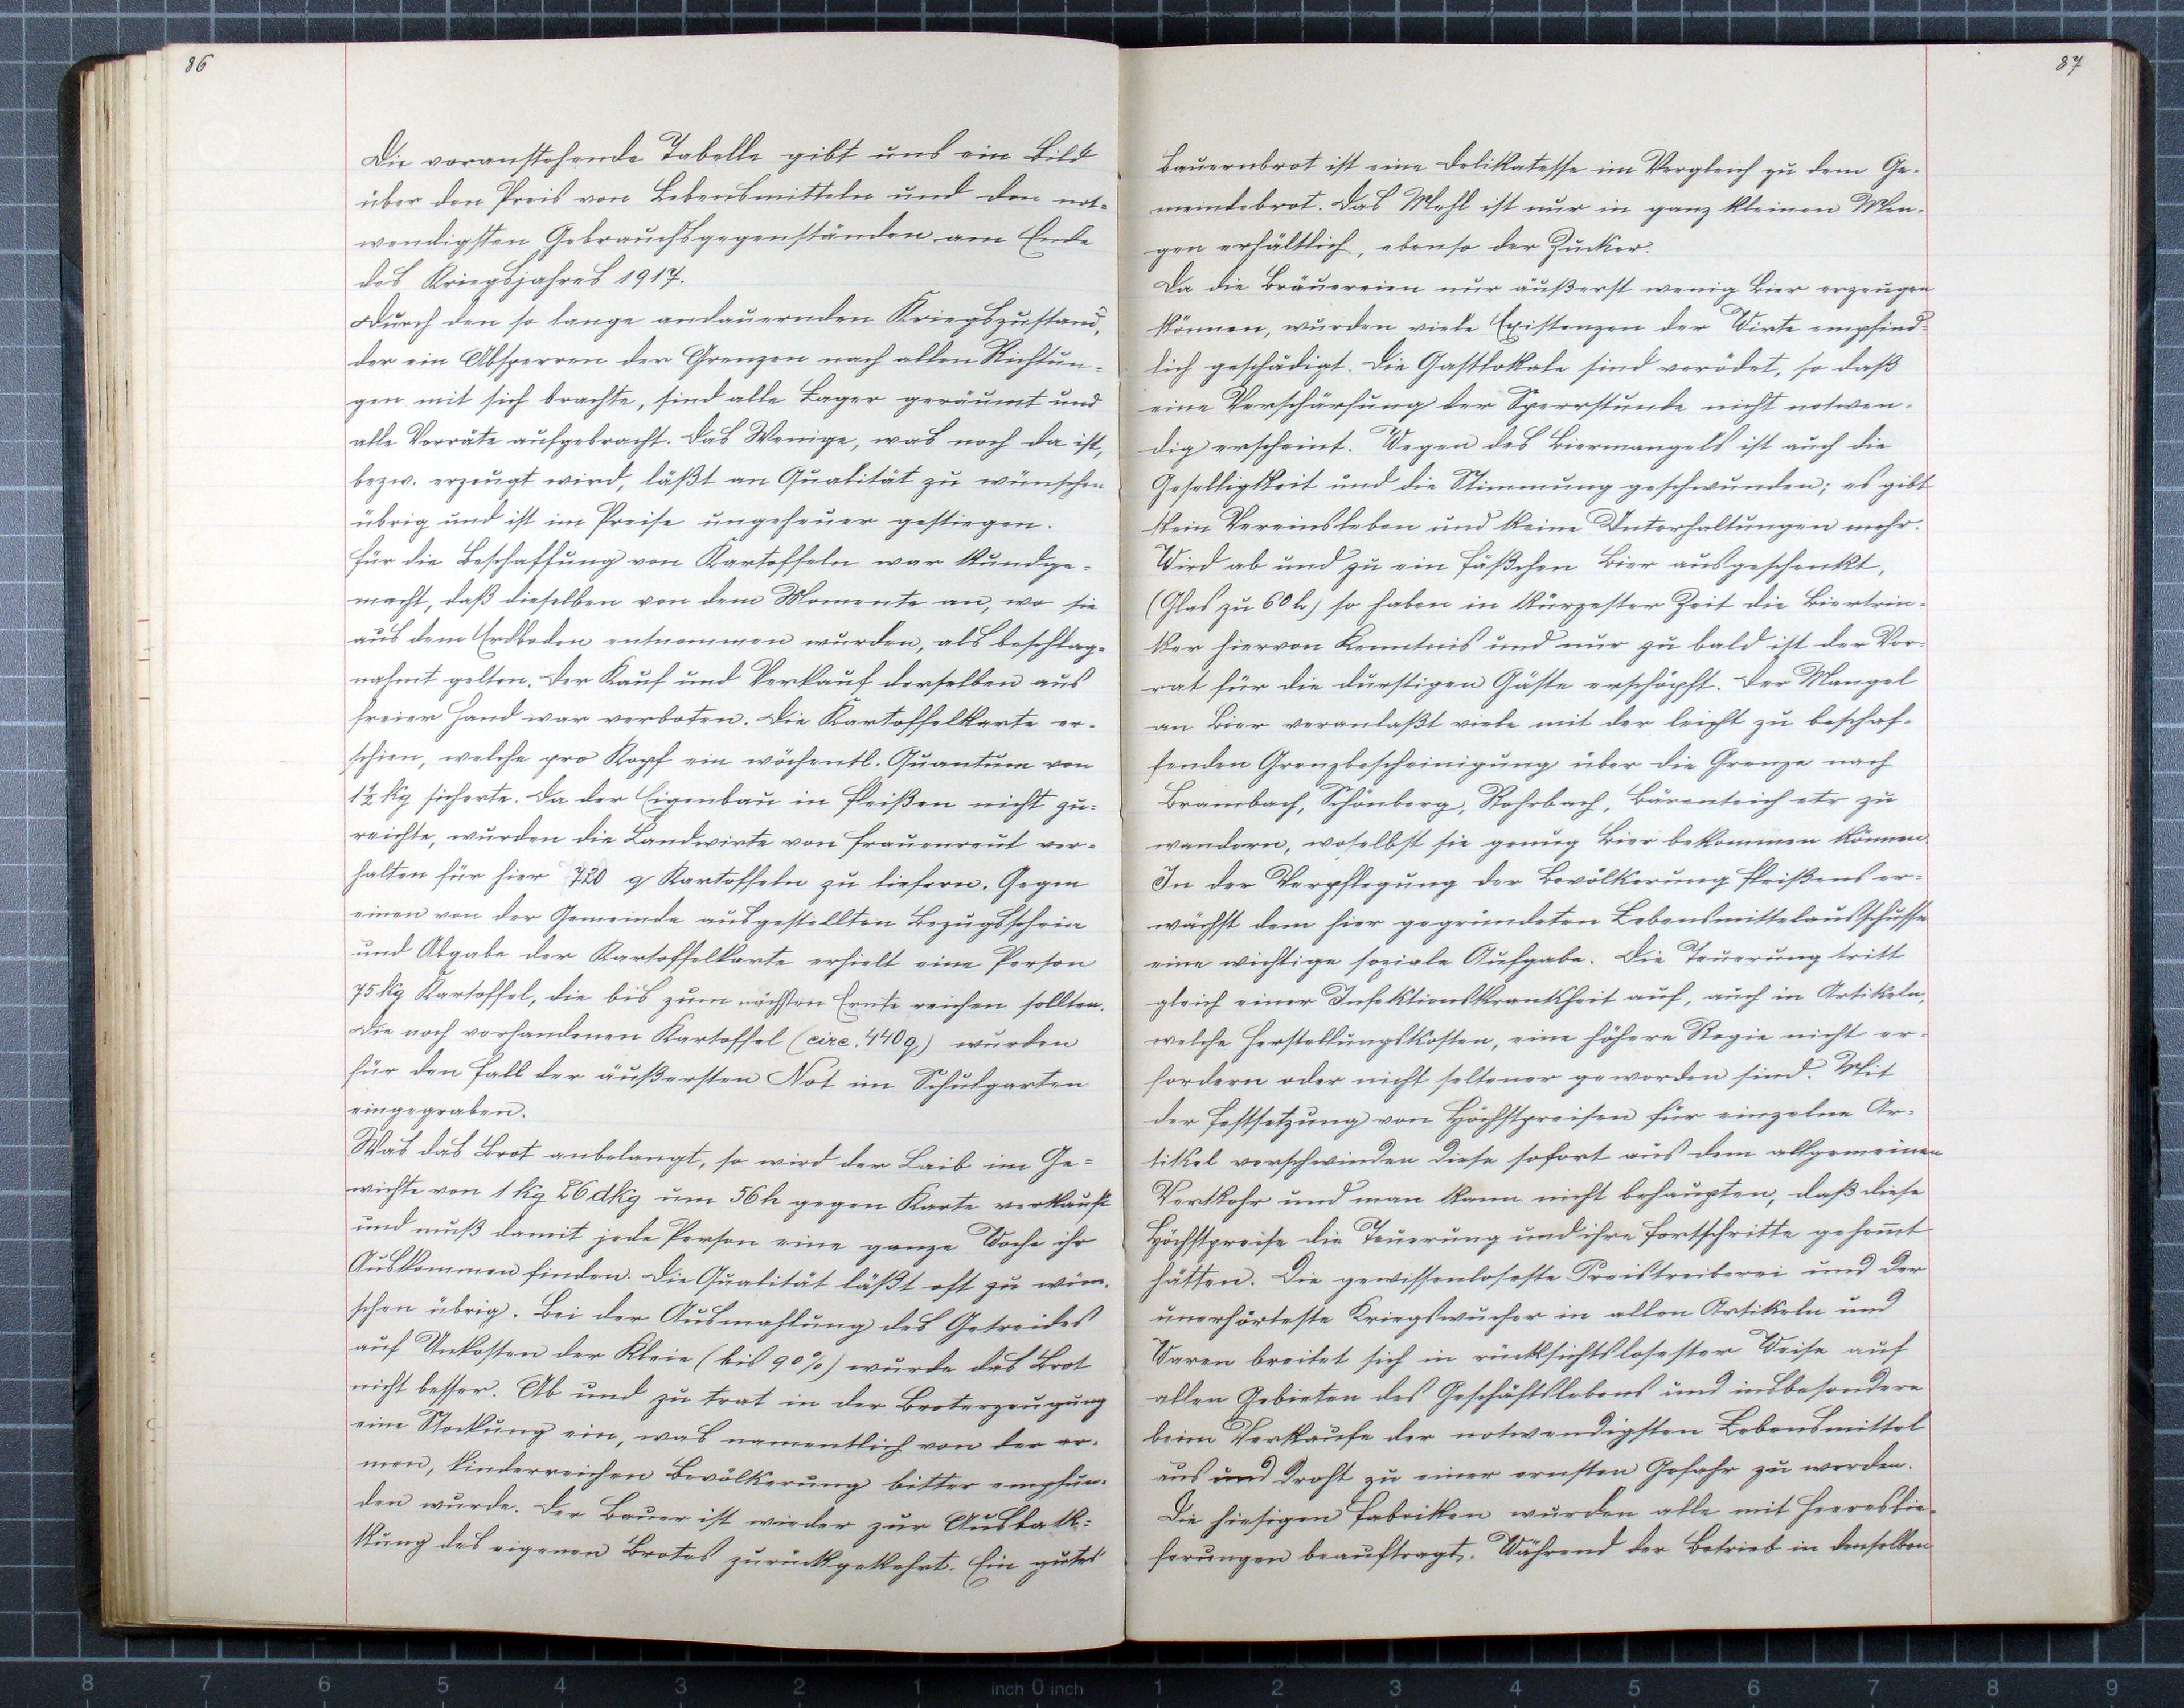 86
Die voranstehende Tabelle gibt uns ein Bild
über den Preis von Lebensmitteln und den not-
wendigsten Gebrauchsgegenständen am Ende
des Kriegsjahres 1917.
Durch den so lange andauernden Kriegszustand,
der ein Absperren der Grenzen nach allen Richtun-
gen mit sich brachte, sind alle Lager geräumt und
alle Vorräte aufgebracht. Das Wenige, was noch da ist,
bezw. erzeugt wird, läßt an Qualität zu wünschen
übrig und ist im Preise ungeheuer gestiegen.
Für die Beschaffung von Kartoffeln war kundge-
macht, daß dieselben von dem Momente an, wo sie
aus dem Erdboden entnommen wurden, als beschlag-
nahmt gelten. Der Kauf und Verkauf derselben aus
freier Hand war verboten. Die Kartoffelkarte er-
schien, welche pro Kopf ein wöchentl. Quantum von
1½ kg sicherte. Da der Eigenbau in Fleißen nicht zu-
reichte, wurden die Landwirte von Frauenreut ver-
halten für hier 720 q Kartoffeln zu liefern. Gegen
einen von der Gemeinde ausgestellten Bezugsschein
und Abgabe der Kartoffelkarte erhielt eine Person
75 kg Kartoffel, die bis zum nächsten Ernte reichen sollten.
Die noch vorhandenen Kartoffel (circ. 440 q) wurden
für den Fall der äußersten Not im Schulgarten
eingegraben.
Was das Brot anbelangt, so wird der Laib im Ge-
wichte von 1 kg 26 dkg um 56 h gegen Karte verkauft
und muß damit jede Person eine ganze Woche ihr
Auskommen finden. Die Qualität läßt oft zu wün-
schen übrig. Bei der Ausmahlung des Getreides
auf Unkosten der Kleie (bis 90%) wurde das Brot
nicht besser. Ab und zu trat in der Broterzeugung
eine Stockung ein, was namentlich von der ar-
men, kinderreichen Bevölkerung bitter empfun-
den wurde. Der Bauer ist wieder zur Ausbak-
kung des eigenen Brotes zurückgekehrt. Ein gutes
87
Bauernbrot ist eine Delikatesse im Vergleich zu dem Ge-
meindebrot. Das Mehl ist nur in ganz kleinen Men-
gen erhältlich, ebenso der Zucker.
Da die Bräuereien nur äußerst wenig Bier erzeugen
können, wurden viele Existenzen der Wirte empfind-
lich geschädigt. Die Gastlokale sind verödet, so daß
eine Verschärfung der Sperrstunde nicht notwen-
dig erscheint. Wegen des Biermangels ist auch die
Geselligkeit und die Stimmung geschwunden; es gibt
kein Vereinsleben und keine Unterhaltungen mehr.
Wird ab und zu ein Fäßchen Bier ausgeschenkt,
(Glas zu 60 h) so haben in kürzester Zeit die Biertrin-
ker hiervon Kenntnis und nur zu bald ist der Vor-
rat für die durstigen Gäste erschöpft. Der Mangel
an Bier veranlaßt viele mit der leicht zu beschaf-
fenden Grenzbescheinigung über die Grenze nach
Brambach, Schönberg, Rohrbach, Bärenteich etc zu
wandern, woselbst sie genug Bier bekommen können.
In der Verpflegung der Bevölkerung Fleißens er-
wächst dem hier gegründeten Lebensmittelausschusse
eine wichtige soziale Aufgabe. Die Teuerung tritt
gleich einer Infektionskrankheit auf, auch in Artikeln,
welche Herstellungskosten, eine höhere Regie nicht er-
fordern oder nicht seltener geworden sind. Mit
der Festsetzung von Höchstpreisen für einzelne Ar-
tikel verschwinden diese sofort aus dem allgemeinen
Verkehr und man kann nicht behaupten, daß diese
Höchstpreise die Teuerung und ihre Fortschritte gehem̄t
hätten. Die gewissenloseste Preistreiberei und der
unerhörteste Kriegswucher in allen Artikeln und
Waren breitet sich in rücksichtslosester Weise auf
allen Gebieten des Geschäftslebens und insbesondere
beim Verkaufe der notwendigsten Lebensmittel
aus und droht zu einer ernsten Gefahr zu werden.
Die hiesigen Fabriken wurden alle mit Heereslie-
ferungen beauftragt. Während der Betrieb in denselben
8 7 6 5 4 3 2 1 inch 0 inch 1 2 3 4 5 6 7 8 9